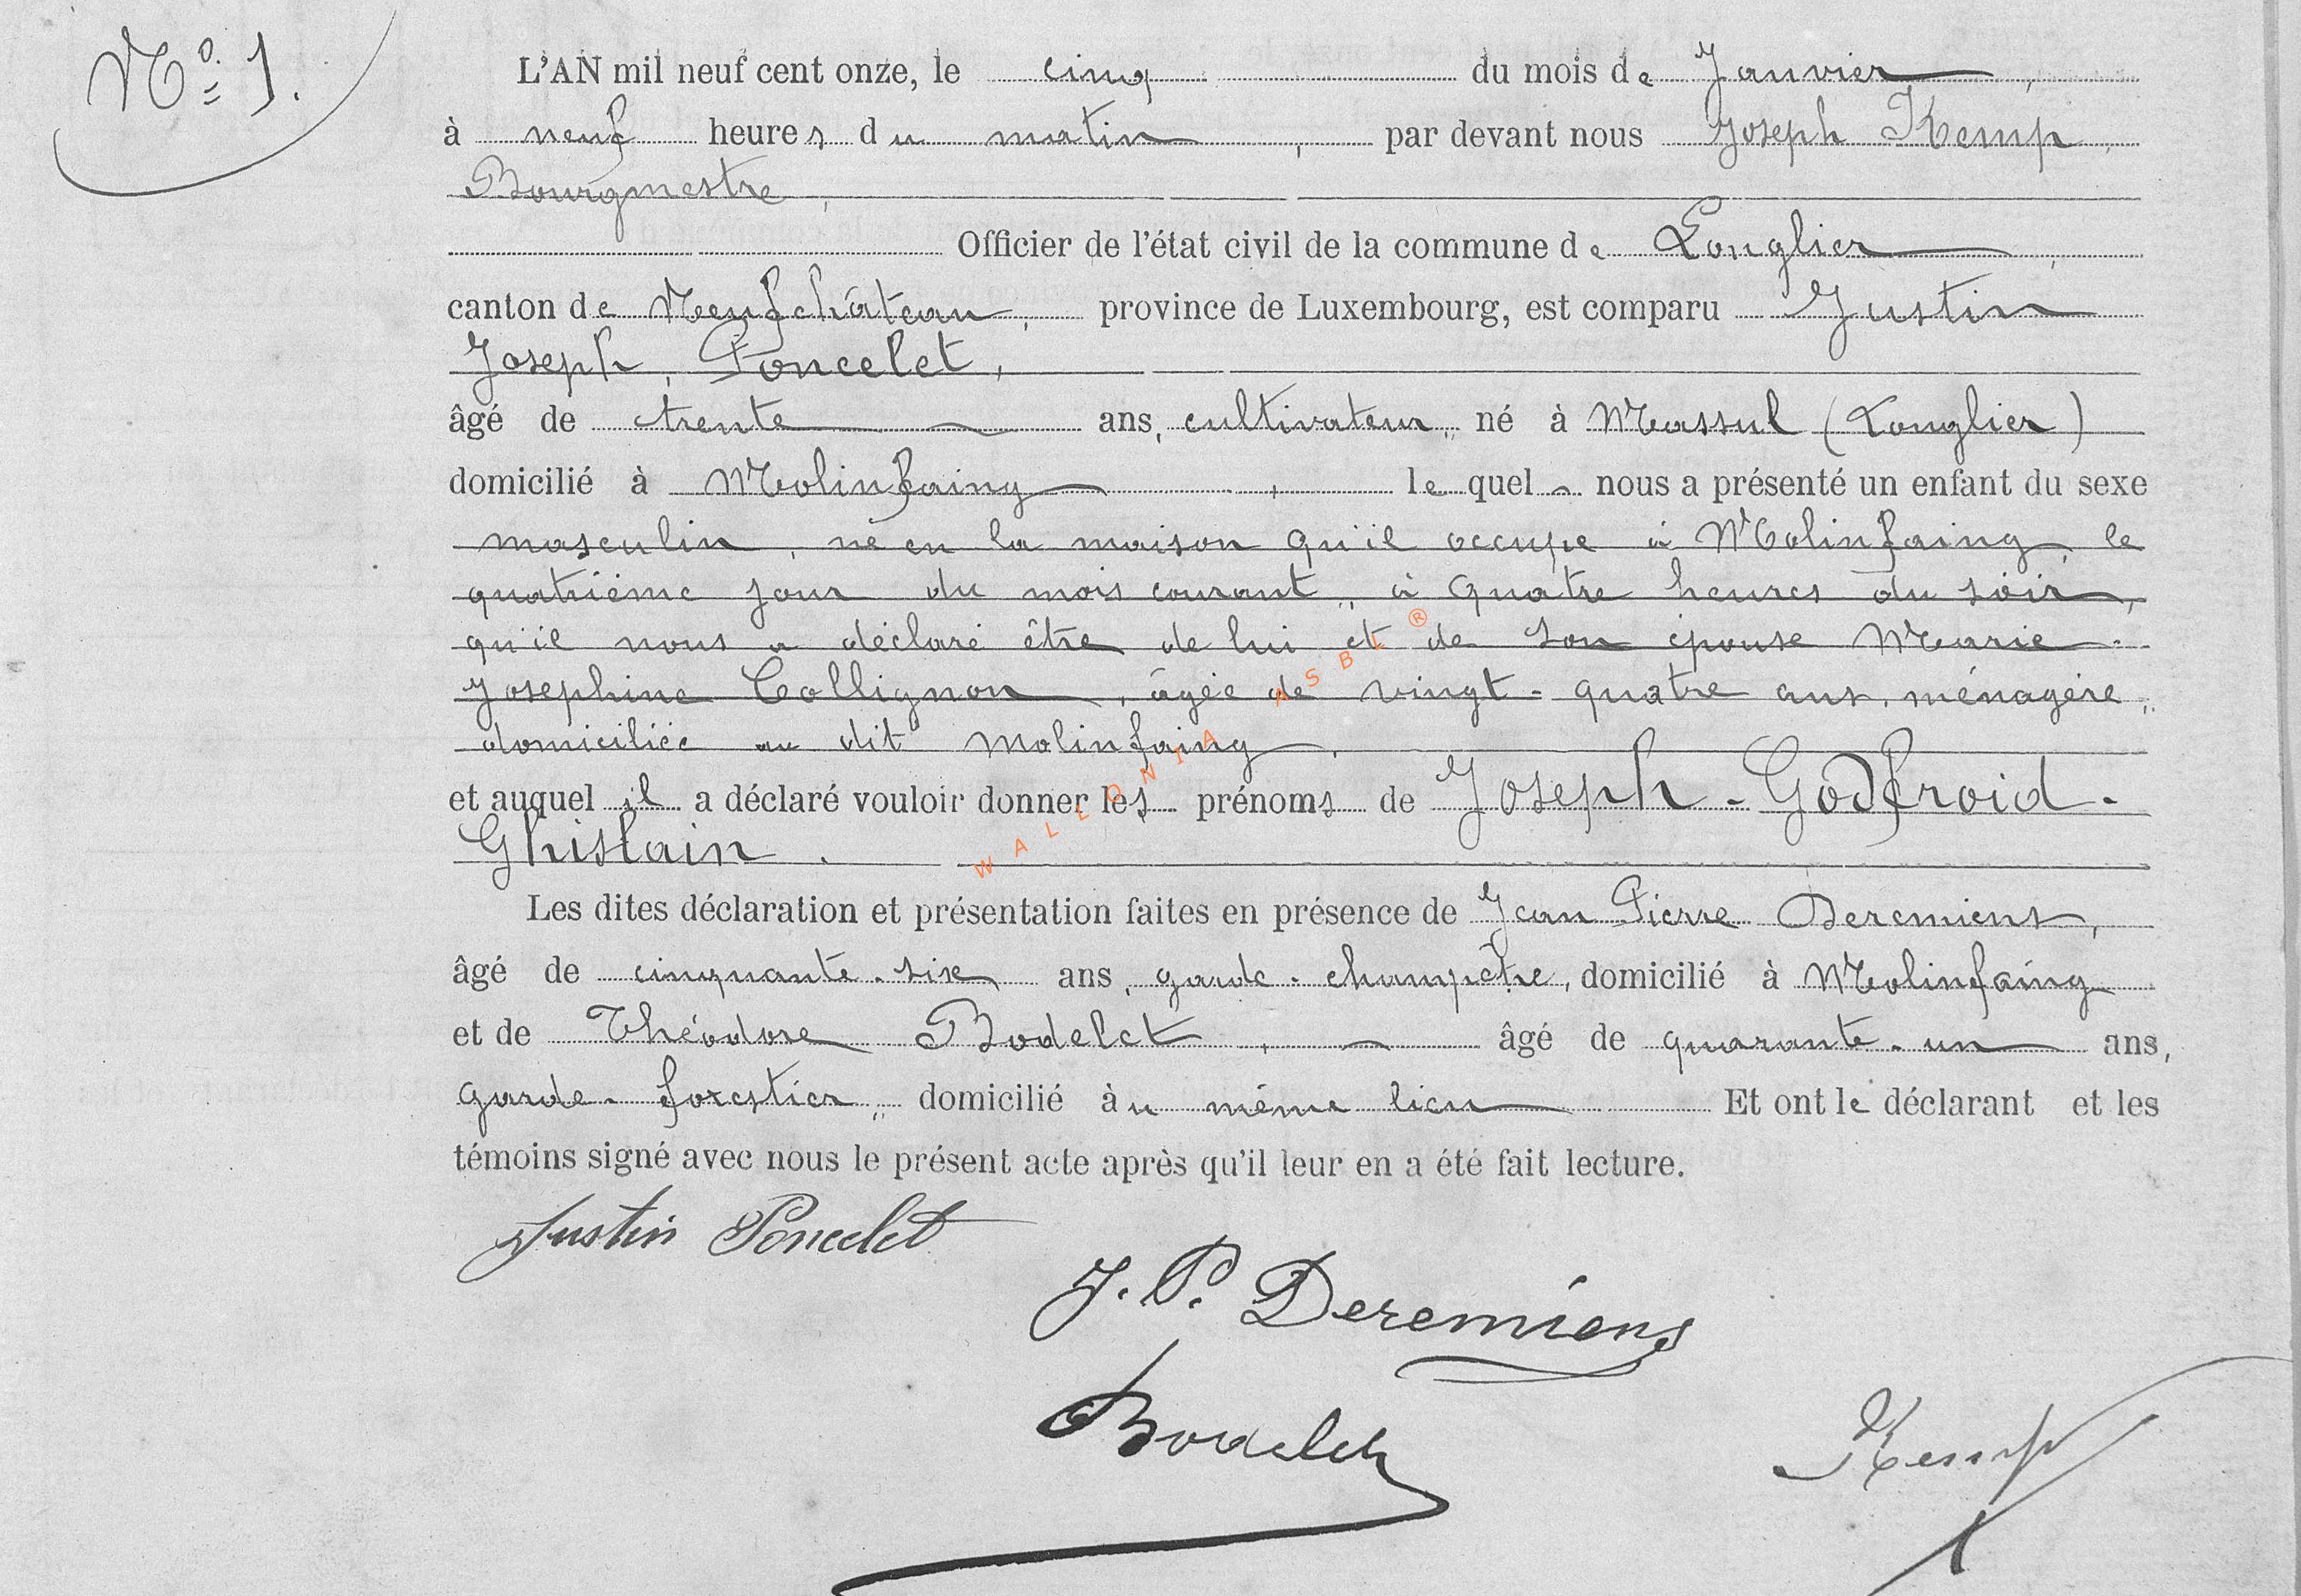 Nº 1.
L'AN mil neuf cent onze, le cinq du mois de Janvier,
à neuf heures du matin, par devant nous Joseph Kemp,
Bourgmestre,
Officier de l'état civil de la commune de Longlier,
canton de Neufchâteau, province de Luxembourg, est comparu Justin
Joseph, Poncelet,
âgé de trente ans, cultivateur, né à Massul (Longlier)
domicilié à Molinfaing, lequel nous a présenté un enfant du sexe
masculin, né en la maison qu'il occupe à Molinfaing, le
quatrième jour du mois courant, à quatre heures du soir,
qu'il nous a déclaré être de lui et de son épouse Marie-
Josephine Collignon, âgée de vingt-quatre ans, ménagère,
domiciliée au dit Molinfaing.
et auquel il a déclaré vouloir donner les prénoms de Joseph-Godfroid-
Ghislain.
Les dites déclaration et présentation faites en présence de Jean Pierre Deremiens,
âgé de cinquante-six ans, garde-champêtre, domicilié à Molinfaing
et de Théodore Bodelet, âgé de quarante-un ans,
garde-forestier, domicilié au même lieu Et ont le déclarant et les
témoins signé avec nous le présent acte après qu'il leur en a été fait lecture.
Justin Poncelet
J. P. Deremiens
Bodelet
Kemp
WALLONIA ASBL ®